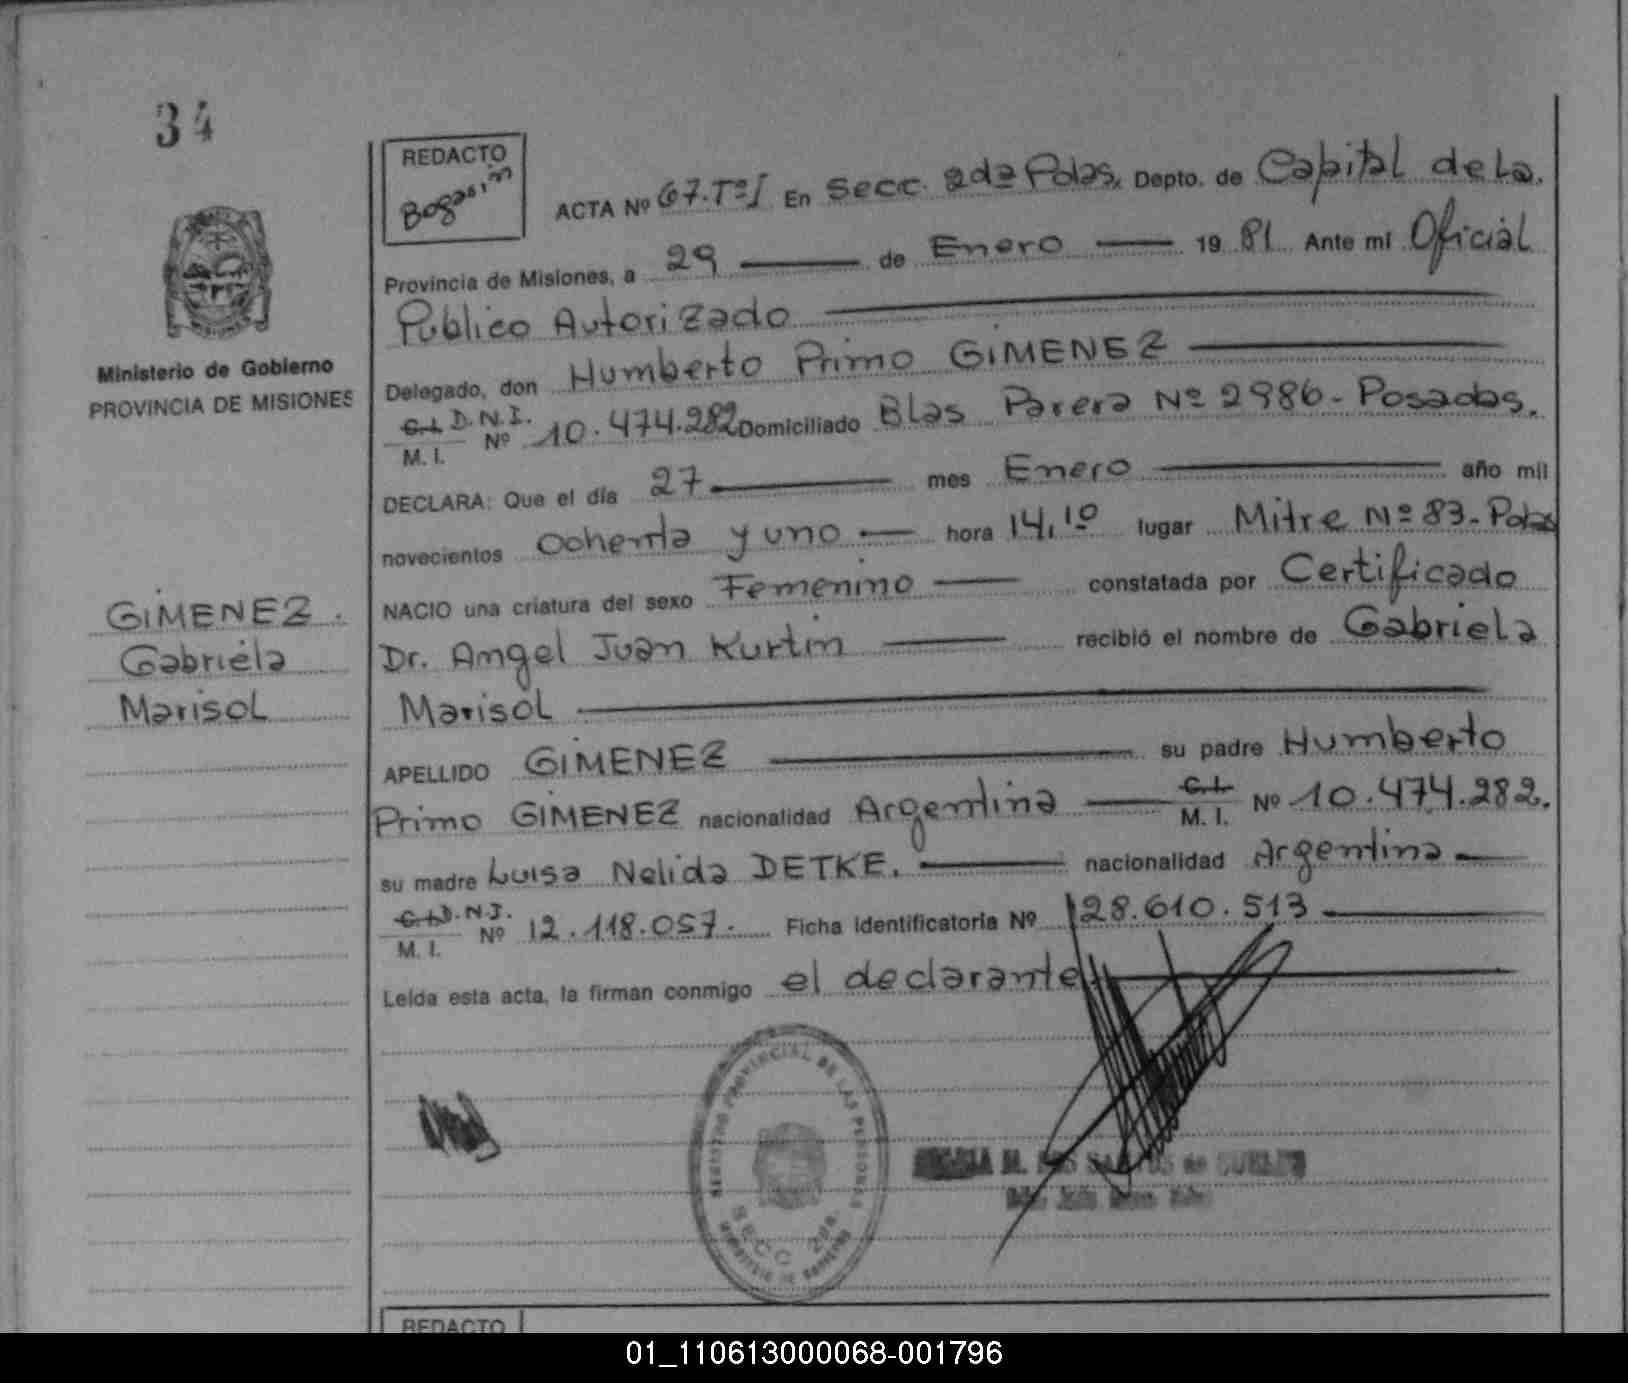 34
REDACTO
Bogarin
ACTA Nº 67.TºI En Secc. 2da Pdas. Depto. de Capital de La.
Provincia de Misiones, a 29 de Enero 19 81 Ante mi Oficial
Publico Autorizado
Delegado, don Humberto Primo GIMENEZ
C.I. D.N.I. Nº 10.474.282 Domiciliado Blas Parera Nº 2986 - Posadas.
M. I.
DECLARA: Que el día 27 mes Enero año mil
novecientos Ochenta y uno hora 14,10 lugar Mitre Nº 83 - Pdas
NACIO una criatura del sexo Femenino constatada por Certificado
Dr. Angel Juan Kurtin recibió el nombre de Gabriela
Marisol
APELLIDO GIMENEZ su padre Humberto
Primo GIMENEZ nacionalidad Argentina C.I. M. I. Nº 10.474.282.
su madre Luisa Nelida DETKE. nacionalidad Argentina
C.I. D.N.I. Nº 12.118.057. Ficha Identificatoria Nº 28.610.513
M. I.
Leída esta acta, la firman conmigo el declarante
Ministerio de Gobierno
PROVINCIA DE MISIONES
GIMENEZ.
Gabriela
Marisol
REGISTRO PROVINCIAL DE LAS PERSONAS
SECC 2da.
M. DOS SANTOS de
REDACTO
01_110613000068-001796